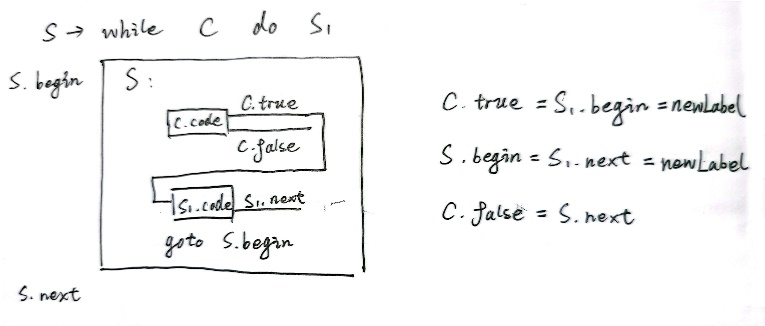 S → while C do S₁
S. begin
S :
C. true
C. code
C. false
S₁. code S₁. next
goto S. begin
S. next
C. true = S₁. begin = newLabel
S. begin = S₁. next = newLabel
C. false = S. next